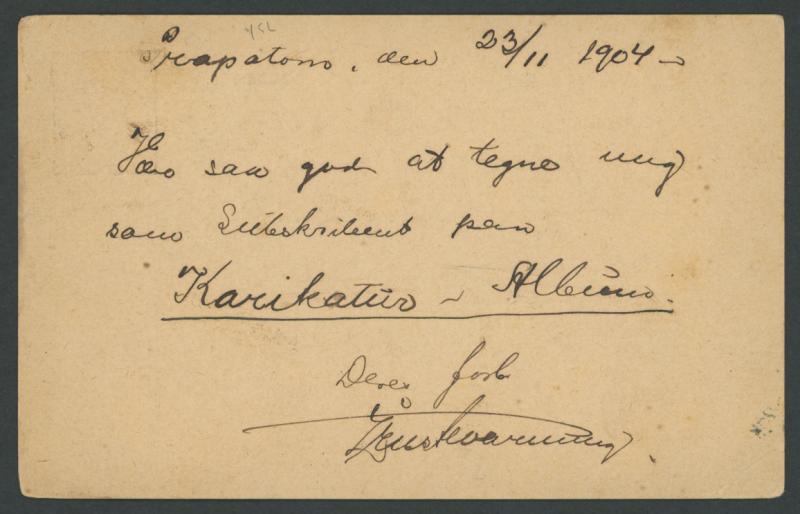 Prapatom, den 23/11 1904 -
Hav saa god at tegne mig
som Subskribent paa
Karikatur - Album.
Deres forb